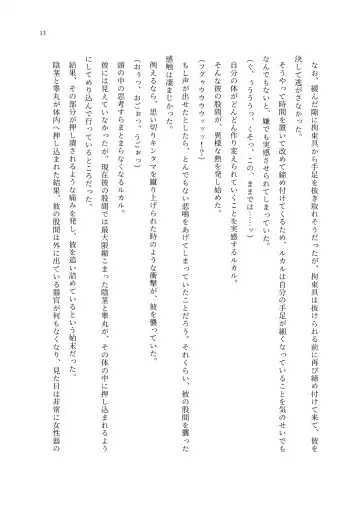 なお、緩んだ隙に拘束具から手足を抜き取れそうだったが、拘束具は抜けられる前に再び締め付けて来て、彼を
決して逃がさなかった。
そうやって時間を置いて改めて締め付けてくるため、ルカルは自分の手足が細くなっていることを気のせいでも
なんでもないと、嫌でも実感させられてしまっていた。
（ぐ、ぅううぅっ、くそっ、この、ままでは……ッ）
自分の体がどんどん作り変えられていくことを実感するルカル。
そんな彼の股間が、異様な熱を発し始めた。
（フグゥウウウウッッッ！？）
もし声が出せたとしたら、とんでもない悲鳴をあげてしまっていたことだろう。それくらい、彼の股間を襲った
感触は凄まじかった。
例えるなら、思い切りキンタマを蹴り上げられた時のような衝撃が、彼を襲っていた。
（おぅっ、おごっ、うごぉっ）
頭の中の思考すらまとまらなくなるルカル。
彼には見えていなかったが、現在彼の股間では最大限縮こまった陰茎と睾丸が、その体の中に押し込まれるよう
にしてめり込んで行っているところだった。
結果、その部分が押し潰されるような痛みを発し、彼を追い詰めているという始末だった。
陰茎と睾丸が体内へ押し込まれた結果、彼の股間は外に出ている器官が何もなくなり、見た目は非常に女性器の
13